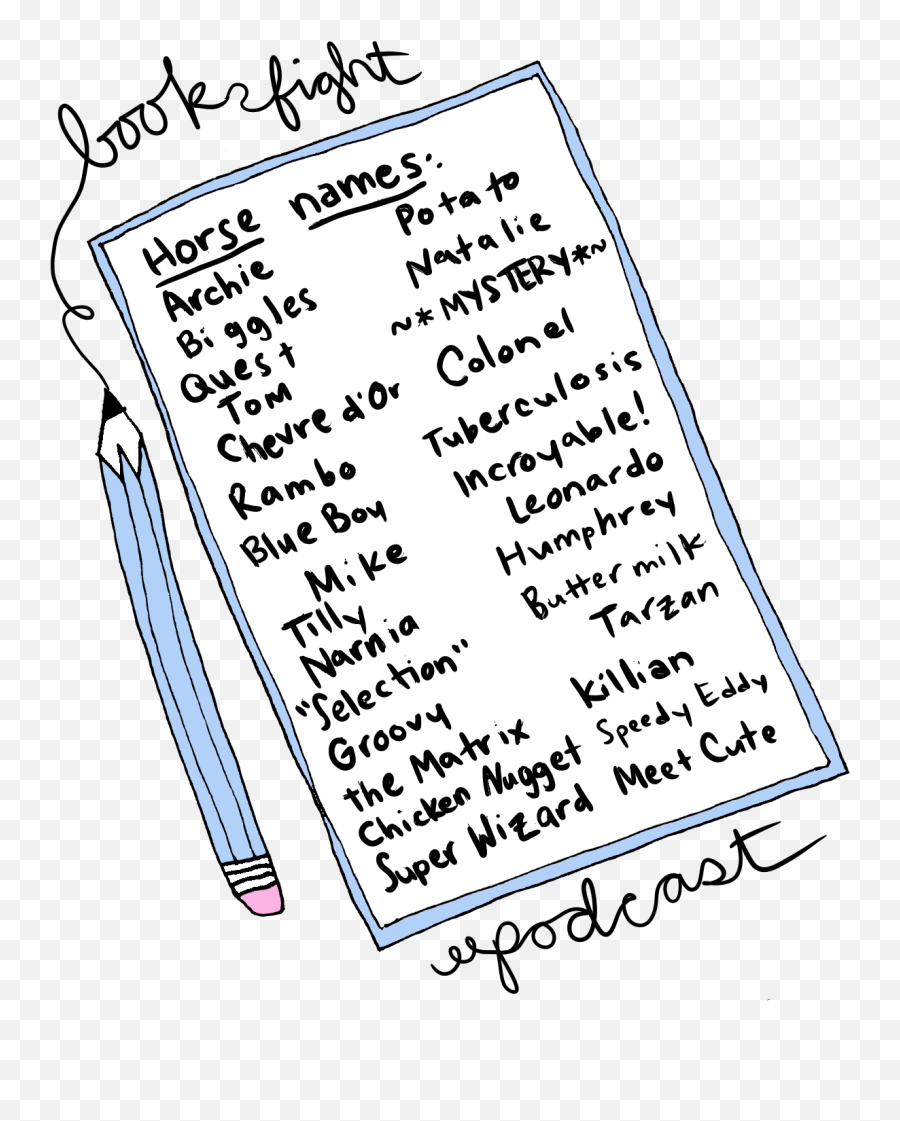 book fight
Horse names:
Archie
Biggles
Quest
Tom
Chevre d'Or
Rambo
Blue Boy
Mike
Tilly
Narnia
"Selection"
Groovy
the Matrix
Chicken Nugget
Super Wizard
Potato
Natalie
~*MYSTERY*~
Colonel
Tuberculosis
Incroyable!
Leonardo
Humphrey
Buttermilk
Tarzan
Killian
Speedy Eddy
Meet Cute
podcast